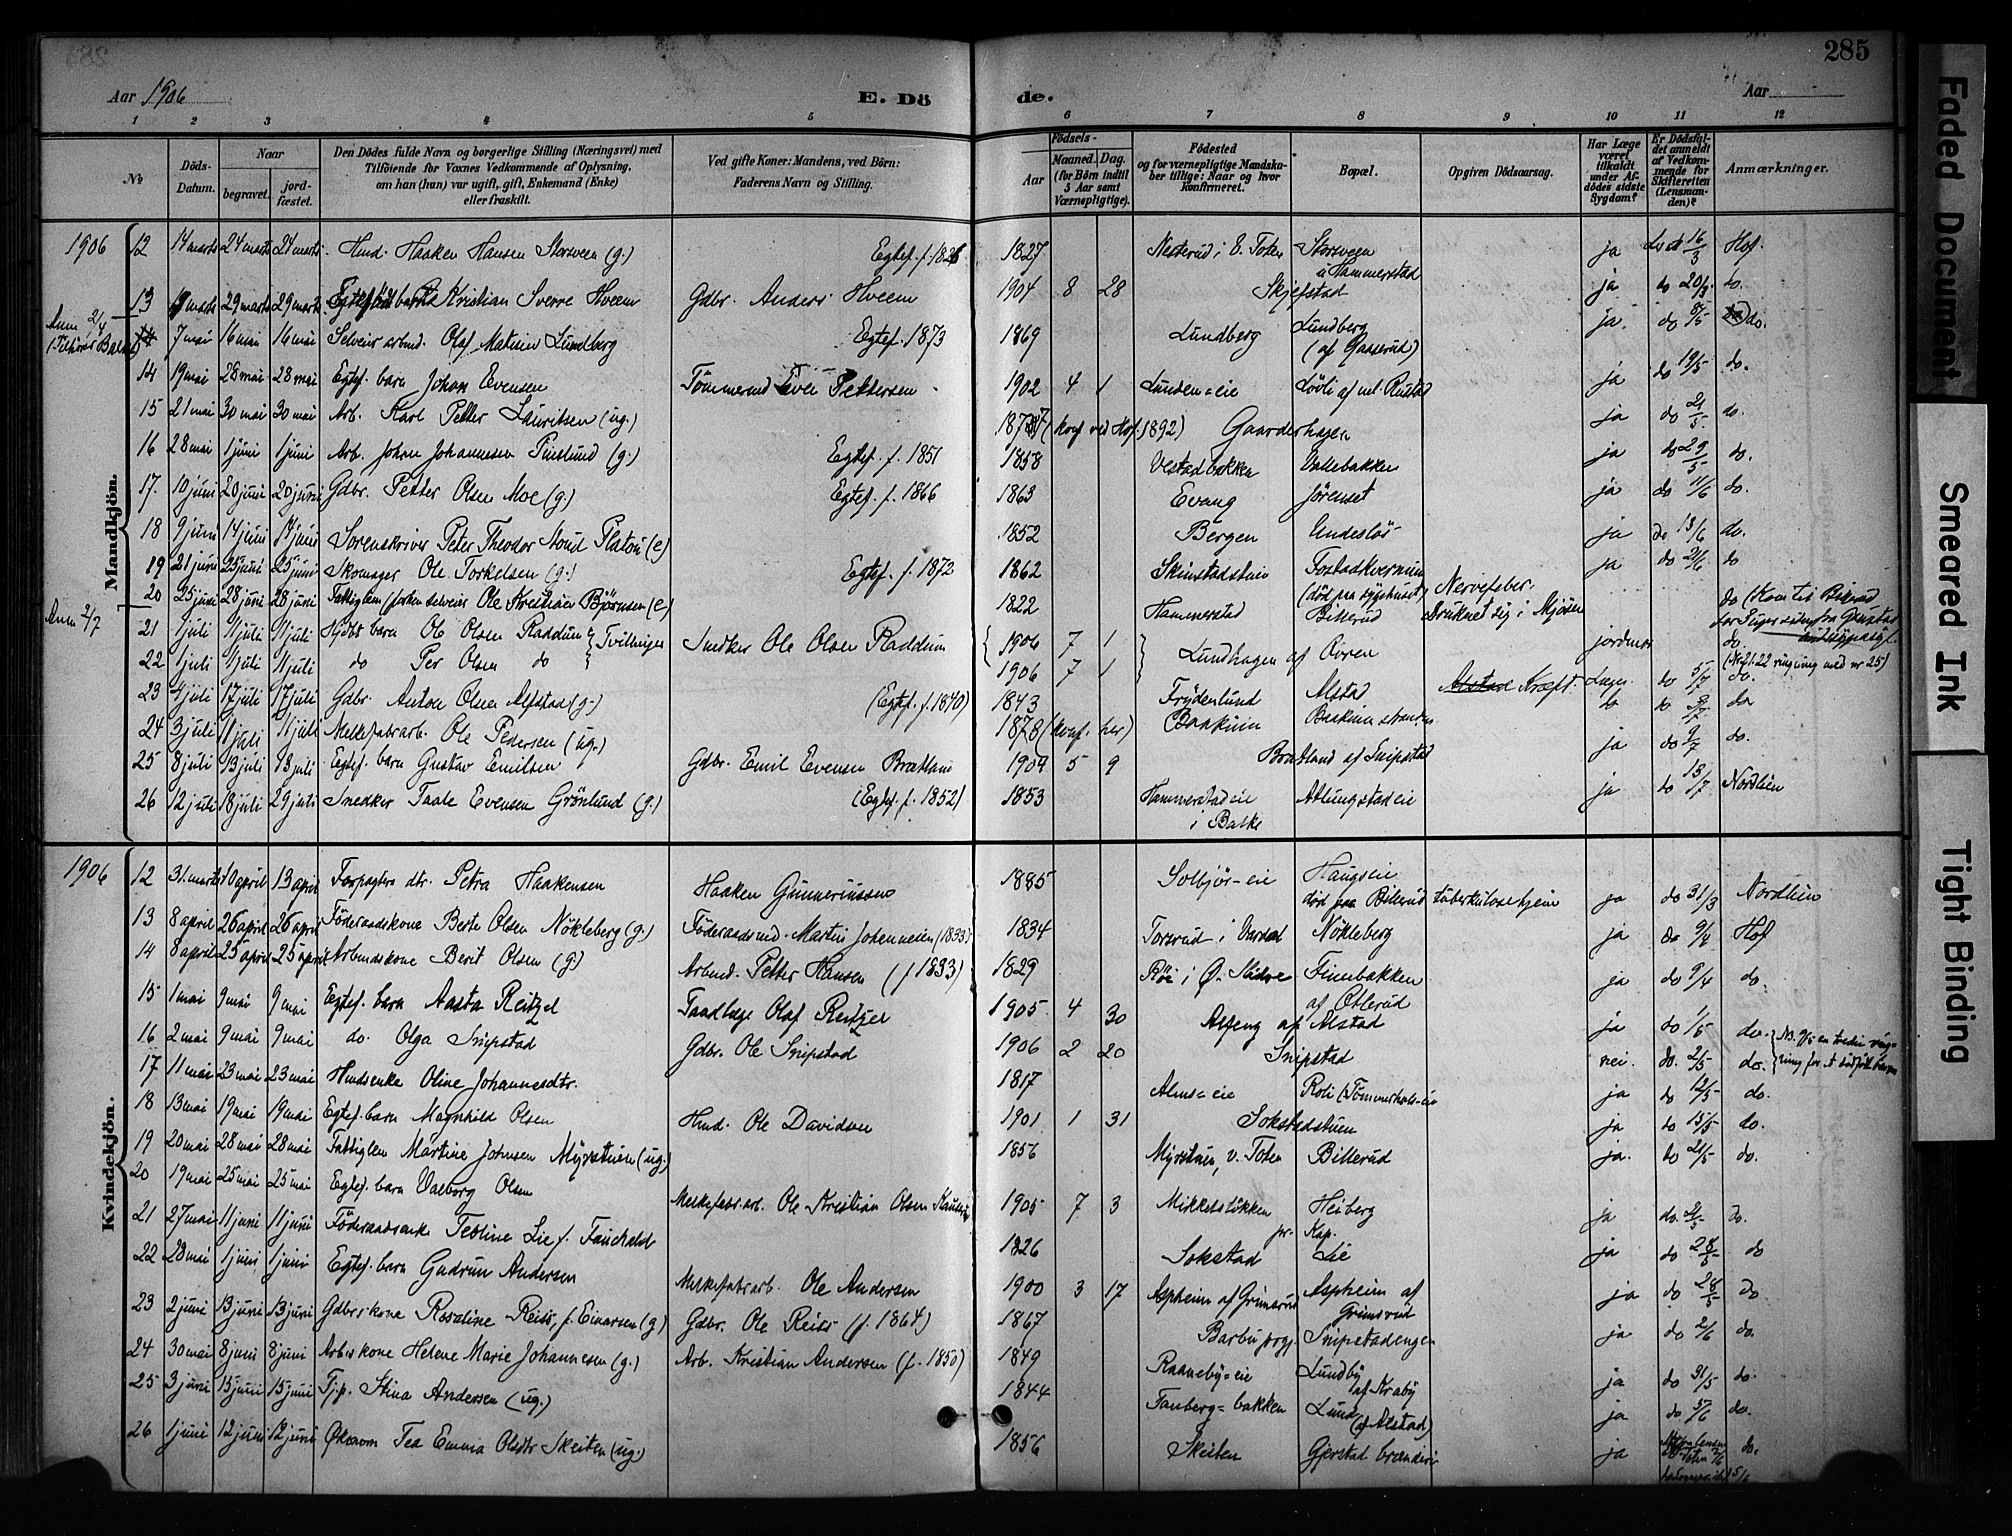 285
Aar 1906
E. Dö
de.
Aar
1 2 3 4 5 6 7 8 9 10 11 12
No
Döds-Datum.
Naar
begravet.
jord-fæstet.
Den Dödes fulde Navn og borgerlige Stilling (Næringsvei) med
Tilföiende for Voxnes Vedkommende af Oplysning,
om han (hun) var ugift, gift, Enkemand (Enke)
eller fraskilt.
Ved gifte Koner: Mandens, ved Börn:
Faderens Navn og Stilling.
Födsels-
Aar
Maaned. Dag.
(for Börn indtil
5 Aar samt
Værnepligtige).
Födested
og for værnepligtige Mandska-
ber tillige: Naar og hvor
konfirmeret.
Bopæl.
Opgiven Dödsaarsag.
Har Læge
været
tilkaldt
under Af-
dödes sidste
Sygdom?
Er Dödsfal-
det anmeldt
af Vedkom-
mende for
Skifteretten
(Lensman-
den)?
Anmærkninger.
Mandkjön.
1906 12 14 marts 24 marts 24 marts Hmd. Haaken Hansen Storsveen (g.) Egtef. f. 1826 1827 Nesterud i E. Toten Storsveen u Hammerstad ja do 16/3 Hof.
13 marts 29 marts 29 marts Egtef. barn Kristian Sverre Hveem Gdbr. Anders Hveem 1904 8 28 Skjefstad ja do 20/3 do.
Anm. 2/4
7 mai 16 mai 16 mai Selveier arbmd. Olaf Matisen Lundberg Egtef. 1873 1869 Lundberg Lundberg (af Gaaserud) ja. do 8/5 do.
14 19 mai 28 mai 28 mai Egtef. barn Johan Evensen Tømmermd Even Pettersen 1902 4 1 Lunden=eie Lövli af nl. Rustad ja do 19/5 do.
15 21 mai 30 mai 30 mai Arb. Karl Petter Lauritsen (ug.) (konf. ved Hof. 1892) Gaarderhagen ja do 21/5 do.
16 28 mai 1 juni 1 juni Arb. Johan Johannesen (g.) Egtef. f. 1851 1858 Vestadbakken Vallebakken ja do 29/5 do.
17. 10 juni 20 juni 20 juni Gdbr. Petter Olsen Moe (g.) Egtef. f. 1866 1863 Evang Jörenset ja do 11/6 do.
18 9 juni 14 juni 14 juni Sorenskriver Peter Theodor Stoud Platou (e) 1852 Bergen Undeslös ja do 13/6 do.
19 21 juni 25 juni 25 juni Skomager Ole Torkelsen (g.) Egtef. f. 1872 1862 Skinstadstuen Fostadkvernen (död paa sygehuset) Nervefeber. ja do 21/6 do
20 25 juni 28 juni 28 juni Fattiglem (forhen selveier) Ole Kristian Björnsen (e) 1822 Hammerstad Billerud Druknet sig i Mjösen do
Anm 2/7
21 1 juli 11 juli 11 juli Hjdbt barn Ole Olsen Raddum } Tvillinger Snedker Ole Olsen Raddum 1906 7 1 Lundhagen af Ovren jordmor do
22 1 juli 11 juli 11 juli do Per Olsen do 1906 7 1 (Nr 21.22 ringing med nr 25)
23 4 juli 17 juli 17 juli Gdbr Anton Olsen Alfstad (g.) (Egtef. f. 1840) 1843 Frydenlund Alstad Kræft. Læge do 5/7 do.
24 3 juli 11 juli 11 juli Melkefabarb. Ole Pedersen (ug.) 1878 (konf. her) Baakinn do
25 8 juli 13 juli 13 juli Egtef. barn Gustav Emilsen Gdbr. Emil Evensen Bratland 5 9 Bratland af Snipstad ja do 9/7 do.
26 12 juli 18 juli 29 juli Snedker Taale Evensen Grönlund (g.) (Egtef. f. 1852) 1853 Hammerstadeie i Balke Atlungstadeie ja do 13/7 Nordlien
Kvindekjön.
1906 12 31. marts 10 april 13 april Forpagters dtr. Petra Haakensen Haaken Gunneriussen 1885 Solbjör=eie Haugseie död paa Billerud tuberkulosehjem ja do 31/3 Nordlien
13 8 april 26 april 26 april Föderaadskone Berte Olsen Nökleberg (g.) Föderaadsmd. Martin Johannesen (1833) 1834 Torsrud i Vardal Nökleberg ja do 9/4 Hof
14 8 april 25 april 25 april Arbmdskone Berit Olsen (g) Arbmd. Petter Hansen (f 1833) 1829 Röi i Ø. Slidre Finnbakken af Otterud ja do 9/4 do.
15 1 mai 9 mai 9 mai Egtef. barn Aasta Reitzel Tandlæge Olaf Reitzel 1905 4 30 Alfeng af Alstad ja do 1/5 do.
16 2 mai 9 mai 9 mai do. Olga Snipstad Gdbr. Ole Snipstad 1906 2 20 Snipstad nei. do. 2/5 do.
17 11 mai 23 mai 23 mai Hmdsenke Oline Johannesdtr. 1817 Alms=eie Roli (Tömmerhols-eie ja do 12/5 do.
18 13 mai 19 mai 19 mai Egtef. barn Magnhild Olsen Hmd. Ole Davidsen 1901 1 31 Sokstadstuen ja do 15/5 do.
19 20 mai 28 mai 28 mai Fattiglem Martine Johnsen Myrstuen (ug.) 1856 Myrstuen, v. Toten Billerud ja. do 21/5 do.
20 19 mai 25 mai 25 mai Egtef. barn Valborg Olsen Melkefabr.arb. Ole Kristian Olsen 1905 7 3 Mikkelslökken Heiberg pr. Kap. ja do. 21/5 do.
21 27 mai 11 juni 11 juni Föderaadsenke Teoline Lie f. Fauchald 1826 Sokstad Lie ja do 28/5 do
22 28 mai 1 juni 1 juni Egtef. barn Gudrun Andersen Melkefabrarb. Ole Andersen 1900 3 17 Aspheim af Grimsrud Aspheim af Grimsrud ja do 28/5 do.
23 2 juni 13 juni 13 juni Gdbrskone Rosaline Reiss, f. Einarsen (g) Gdbr. Ole Reiss (f. 1864) 1867 Barbu prgj. Snipstadengen ja do 2/6 do.
24 30 mai 8 juni 8 juni Arbskone Helene Marie Johannesen (g.) Arb. Kristian Andersen (f. 1850) 1849 Raaneby=eie Lundby af Kraby ja do 31/5 do.
25 3 juni 15 juni 15 juni Tjp. Stina Andersen (ug.) 1844 Fauberg=bakken Lund (af Alstad) ja do 5/6 do.
26 1 juni 12 juni 12 juni Økonom Tea Emma Olsdtr Skeiten (ug.) 1856 Skeiten Gjerstad brænderi ja do.
Faded Document
Smeared Ink
Tight Binding